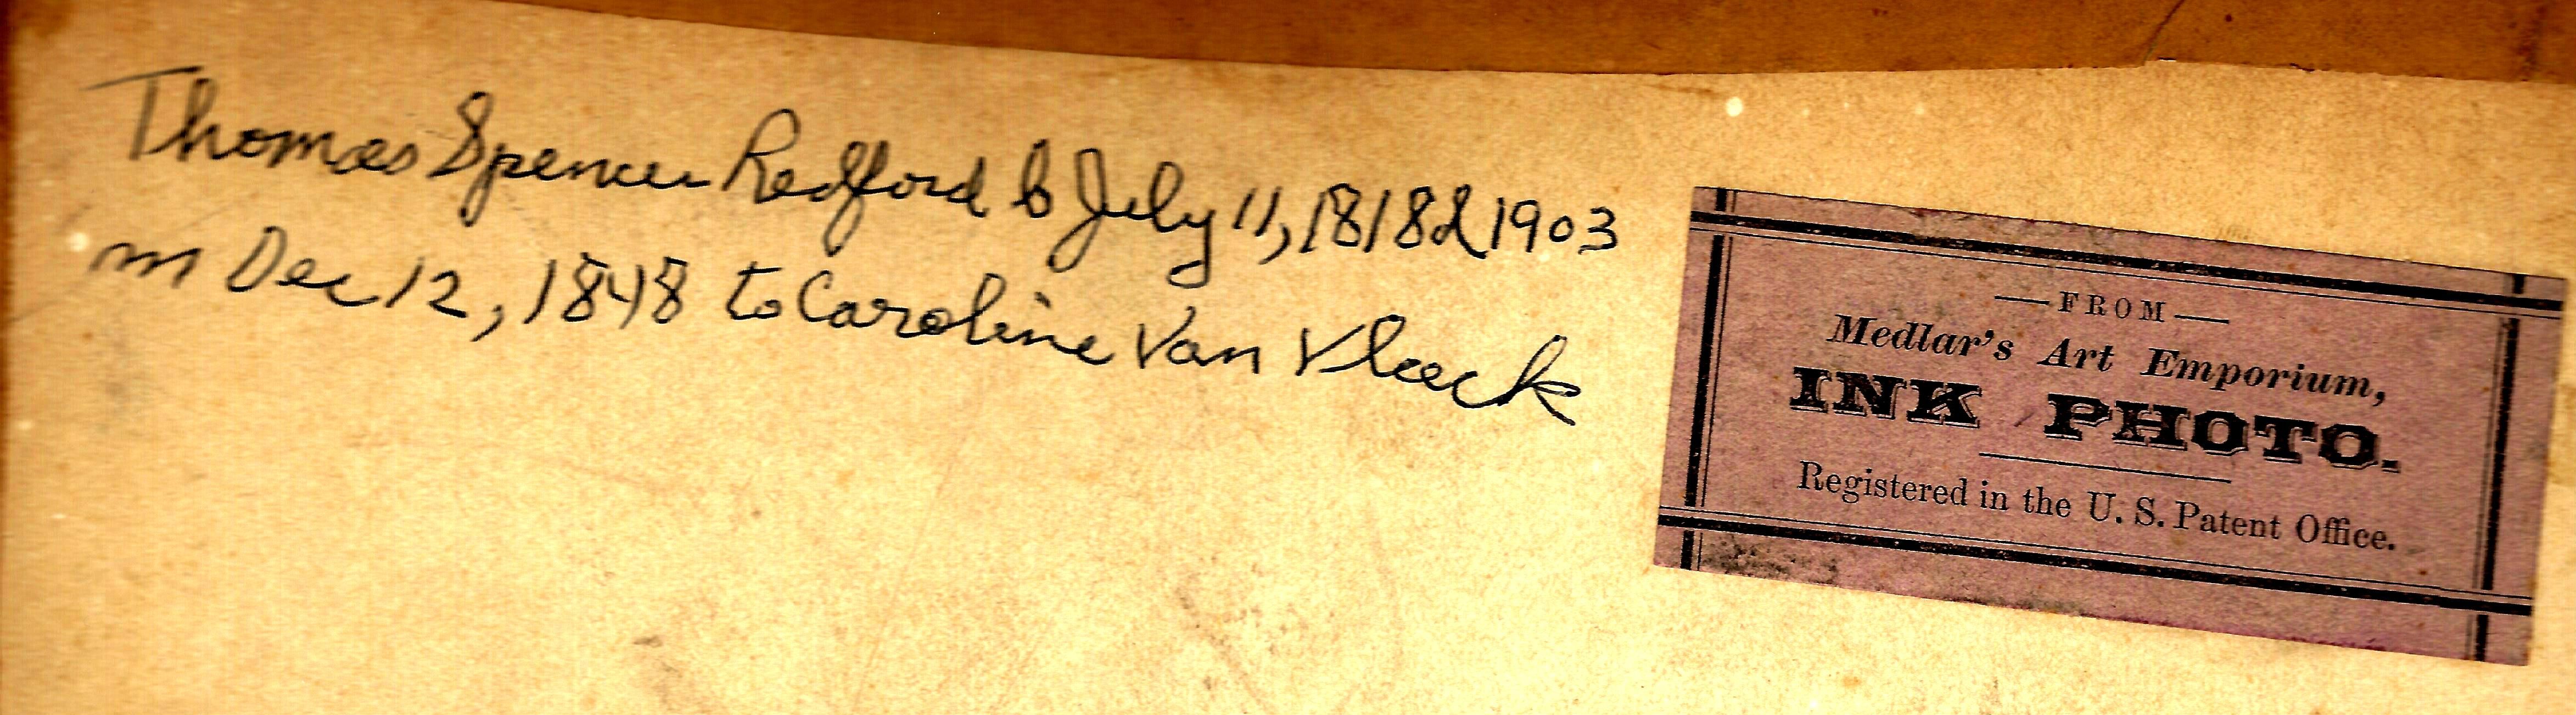 Thomas Spencer Redford b July 11, 1818 d 1903
m Dec 12, 1848 to Caroline Van Vleeck
— FROM —
Medlar's Art Emporium,
INK PHOTO.
Registered in the U. S. Patent Office.